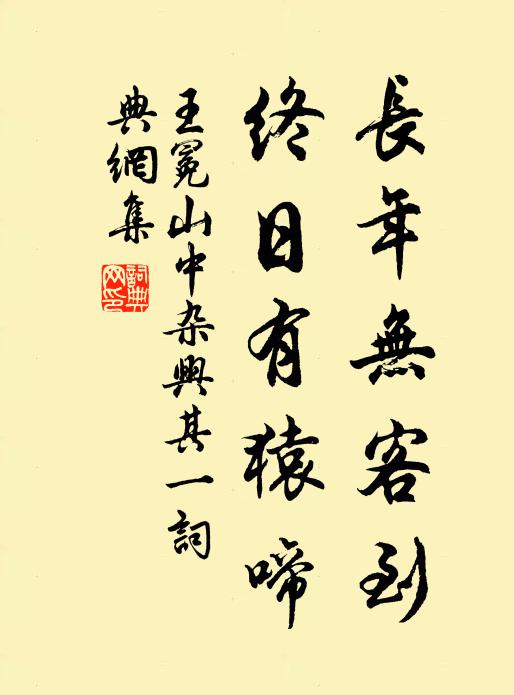 長年無客到
終日有猿啼
王冕山中杂興其一詞
典網集
詞典网印